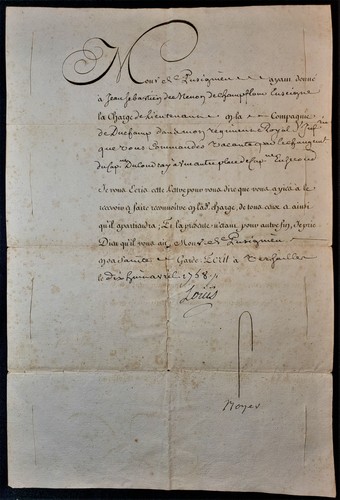 Mons. de Lusignien ayant donné
à Jean Sebastien de Menou de Champflour Enseigne
la Charge de Lieutenant en la Compagnie
de Duchamp dans mon regiment Royal d'Inf.rie
que vous Commandés Vacante par le changement
du Cap.ne Dulondray à une autre place de Cap.ne
Je vous Ecris cette Lettre pour vous dire que vous ayiés à le
recevoir et faire reconnoitre en lad. charge, de tous ceux et ainsi
qu'il apartiendra; Et la presente n'étant pour autre fin, Je prie
Dieu qu'il vous ait Mons. de Lusignien
en sa sainte Garde. Ecrit à Versailles
le avril 1758./.
Louis